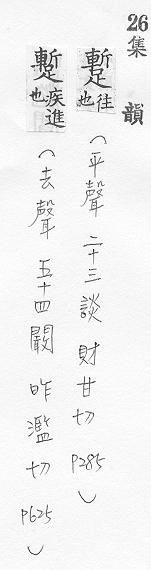 26集 韻
蹔往也(平聲 二十三談 財甘切 P285)
蹔疾進也(去聲 五十四闞 昨濫切 P625)